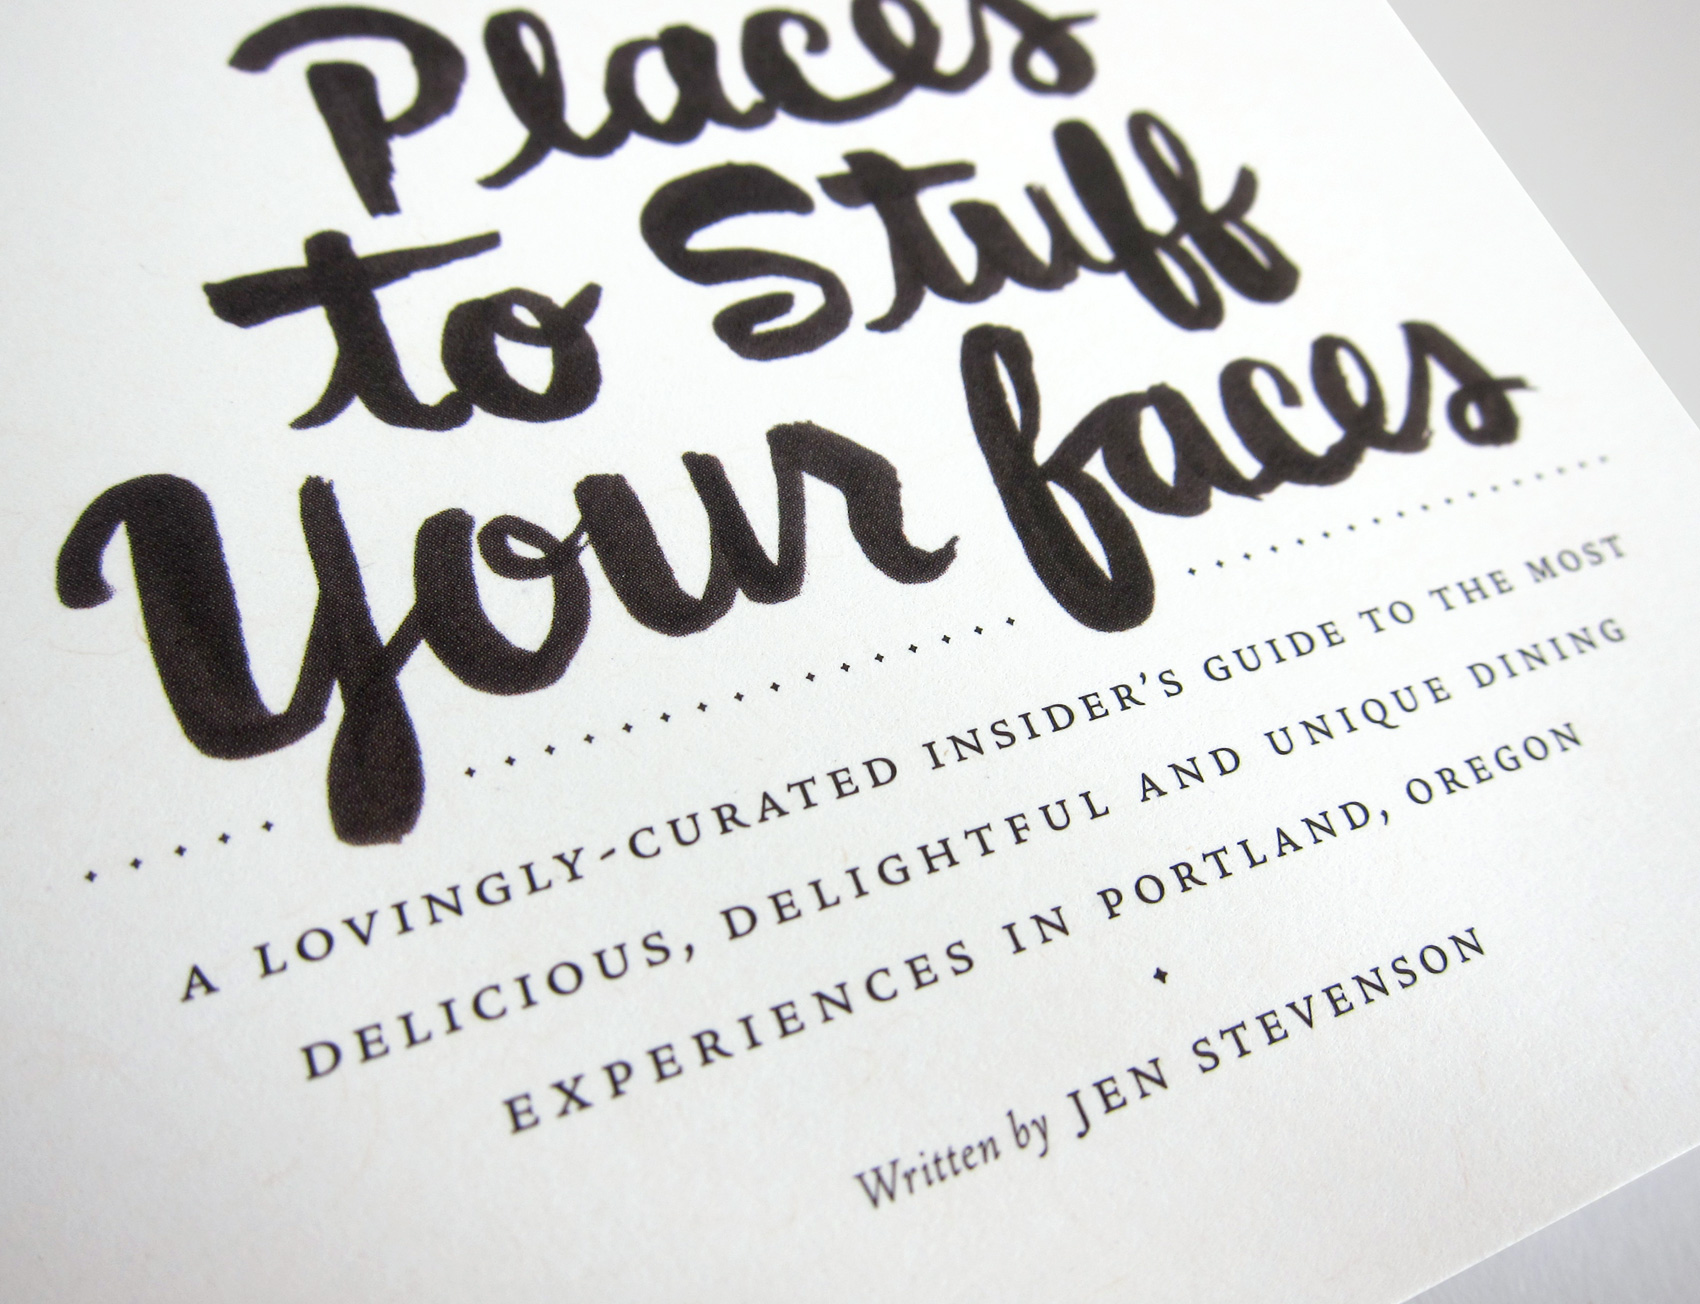 Places
to Stuff
Your faces
A LOVINGLY-CURATED INSIDER'S GUIDE TO THE MOST
DELICIOUS, DELIGHTFUL AND UNIQUE DINING
EXPERIENCES IN PORTLAND, OREGON
Written by JEN STEVENSON